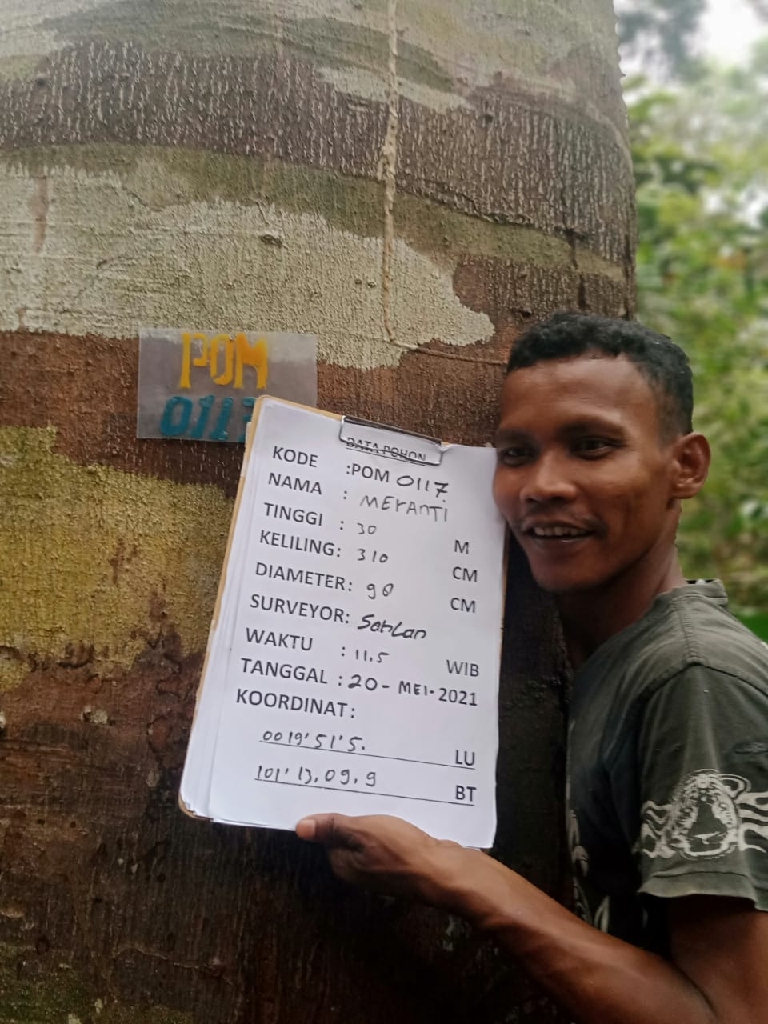 POM
0117
DATA POHON
KODE :POM 0117
NAMA : MERANTI
TINGGI : 30 M
KELILING: 310 CM
DIAMETER: 90 CM
SURVEYOR: Sahlan
WAKTU : 11.5 WIB
TANGGAL : 20 - MEI - 2021
KOORDINAT:
0019'51'5. LU
101'13.09.9 BT